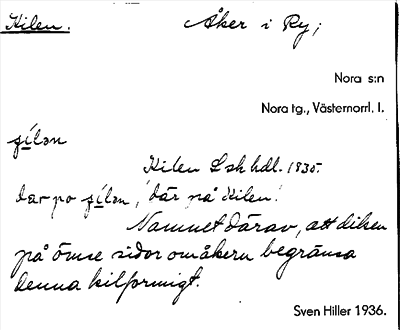 Kilen. Åker i Ry;
Nora s:n
Nora tg., Västernorrl. l.
Kilen Lskhdl. 1835.
dar po , 'där på Kilen'.
Namnet därav, att diken
på ömse sidor om åkern begränsa
denna kilformigt.
Sven Hiller 1936.